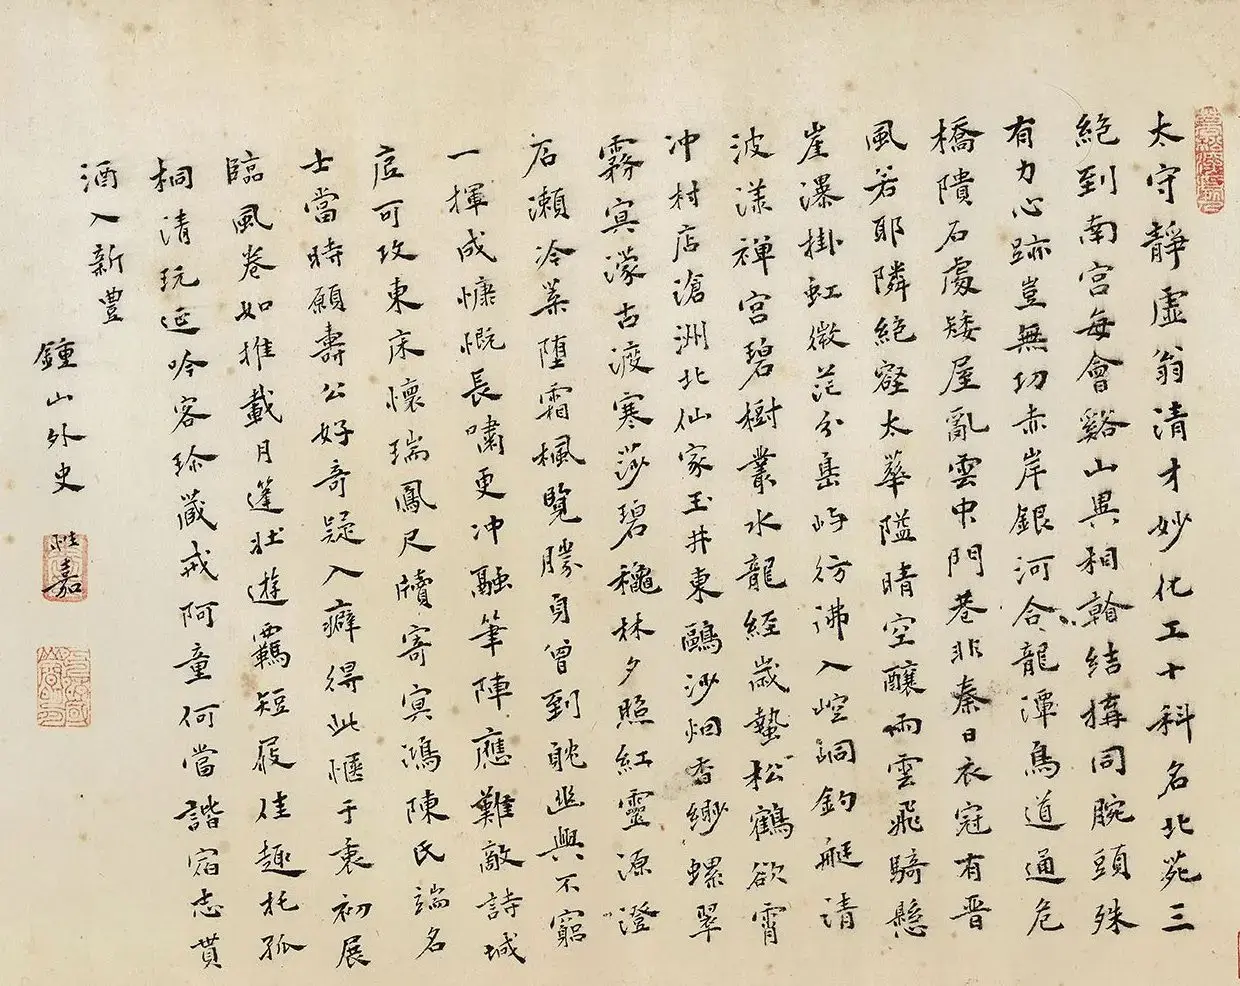 太守靜虛翁清才妙化工十科名北苑三
絕到南宮每會谿山異相翰結構同腕頭殊
有力心跡豈無功赤岸銀河合龍潭鳥道通危
橋隤石處矮屋亂雲中門巷非秦日衣冠有晉
風若耶隣絕壑太華隘晴空釀雨雲飛騎懸
崖瀑掛虹微茫分島嶼彷彿入崆峒釣艇清
波漾禪宮碧樹叢水龍經歲蟄松鶴欲霄
冲村店滄洲北仙家玉井東鷗沙烟香緲螺翠
霧冥濛古渡寒莎碧穐林夕照紅靈源澄
石瀨冷葉墮霜楓覽勝身曾到耽幽興不窮
一揮成慷慨長嘯更冲融筆陣應難敵詩城
底可攻東床懷瑞鳳尺牘寄冥鴻陳氏端名
士當時願壽公好奇疑入癖得此愜于衷初展
臨風卷如推載月篷壯遊羈短屐佳趣托孤
桐清玩延吟客珍藏戒阿童何當諧宿志貰
酒入新豐
鍾山外史 嘉